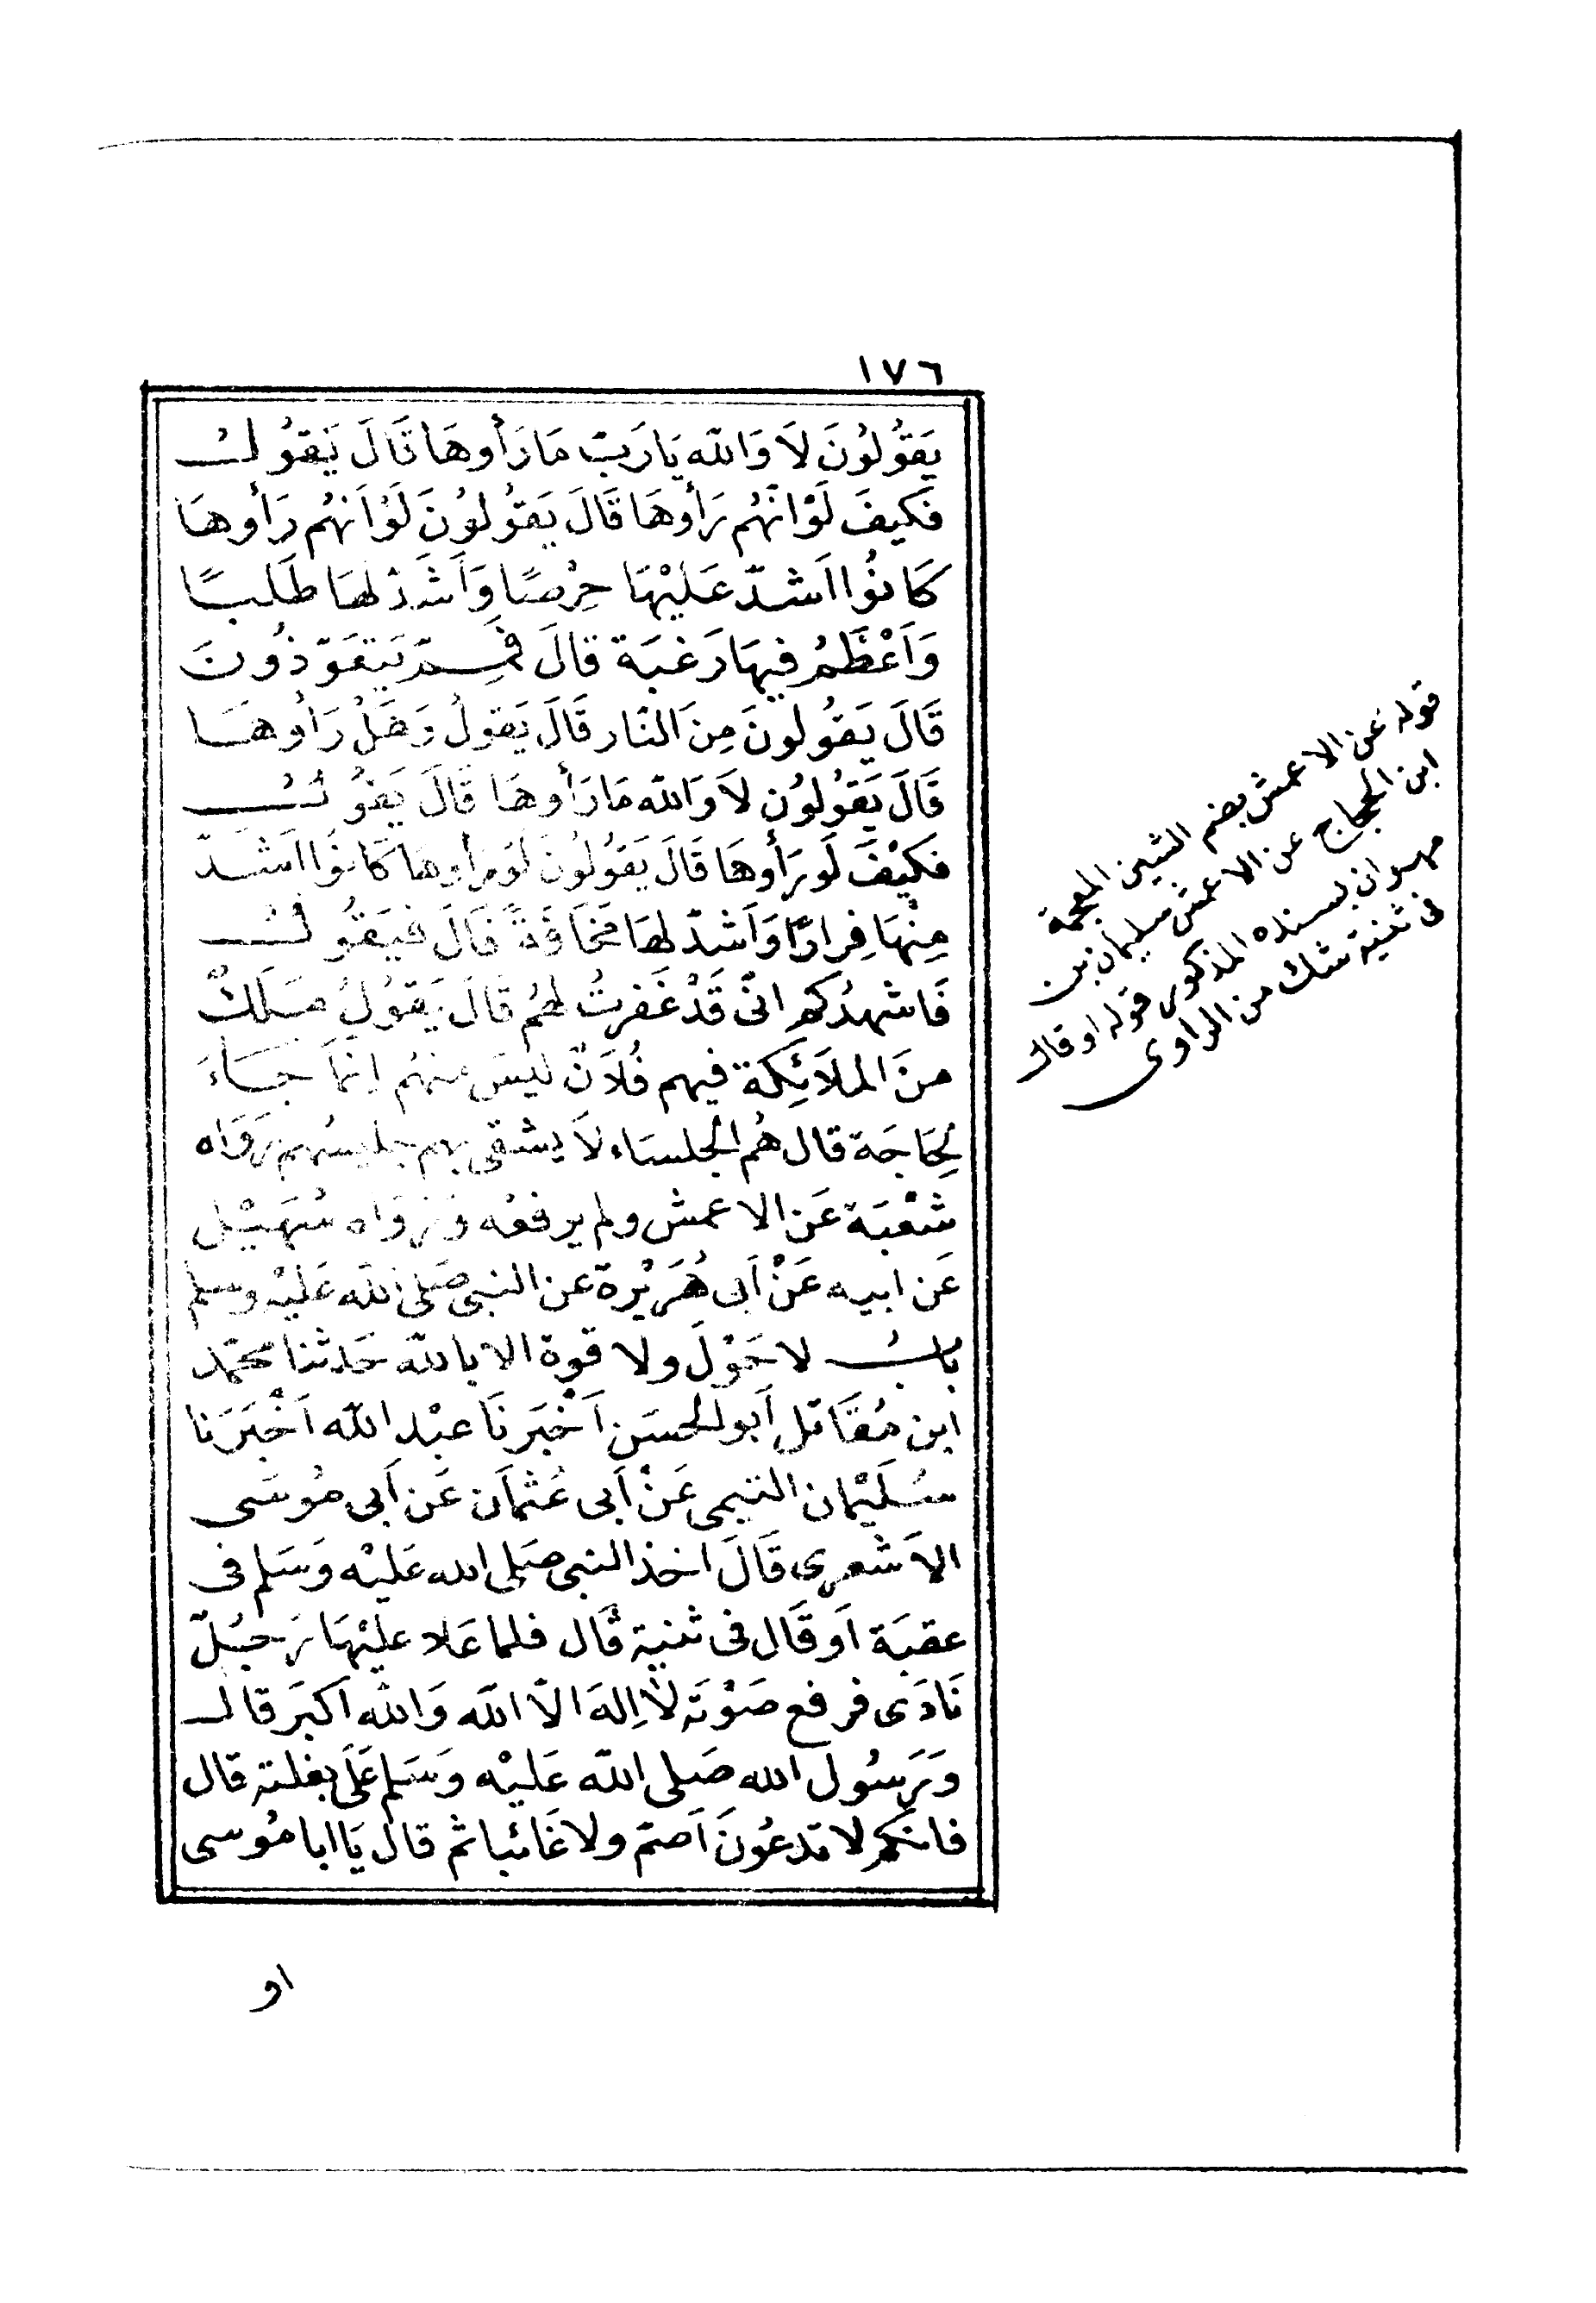 ١٧٦
يَقُولُونَ لَا وَالله يَا رَبّ مَا رَأوهَا قَالَ يَقوُلُ
فَكيفَ لَوْ انَّهُم رَأوهَا قَالَ يَقُولوُنَ لَوْ اَنهُم رَأوهَا
كَانوُا اَشدّ عَليْهَا حِرْصًا وَاَشَدّ لهَا طَلبًا
وَاَعْظَمُ فيهَا رَغبَة قالَ فَمِمّ يَتعَوّذُونَ
قَالَ يَقوُلونَ مِنَ النّار قَالَ يَقولُ وَهَلْ رَأوهَا
قَالَ يَقوُلوُن لاَ وَالله مَا رَأوهَا قَالَ يَقوُلُ
فكيْفَ لَو رَأوهَا قَالَ يَقوُلوُنَ لَو رَأوهَا كَانوُا اَشدّ
مِنْهَا فِرارًا وَاَشدّ لهَا مَخَافَةً قَالَ فيَقوُلُ
فَاشهدُكم انّى قَدْ غَفرتُ لهُم قَالَ يَقوُلُ مَلَكٌ
منَ الملَائِكَة فيهم فُلَانٌ ليسَ منهُم انمَّا جَاءَ
لحِاجَة قال هُم الجلسَاء لاَ يشقى بهم جليسُهم رَوَاه
شعْبَة عَن الاعمش ولم يرفعُه وَرَوَاه سُهَيْل
عَن ابيه عَنْ اَبى هُرَيْرة عن النبى صَلى الله عَليْه وسلم
بابُ لا حَوْلَ ولا قوة الا بالله حَدثنا محمّد
ابن مُقَاتل اَبو الحسَن اَخْبَرنَا عبْد الله اَخْبَرَنا
سُليْمان التيمى عَنْ اَبى عُثمَان عَن اَبى مُوسَى
الاَشعرى قَالَ اخذ النبى صَلى الله عَليْه وَسَلم فى
عقبَة اَو قَال فى ثنية قَال فلما عَلا عليْهَا رَجُلٌ
نَادَى فرفع صَوْتَه لاَ اِلهَ الاّ الله وَالله اَكبَر قال
وَرَسُول الله صَلى الله عَليْه وَسَلم عَلَى بغلته قال
فانكم لا تدعُونَ اَصمّ ولا غَائبا ثم قال يَا ابا مُوسى
او
قوله عن الاعمش بضم الشين المعجمة
ابن الحجاج عن الاعمش سليمان بن
مهران بسنده المذكور قوله او قال
فى ثنية شك من الراوى